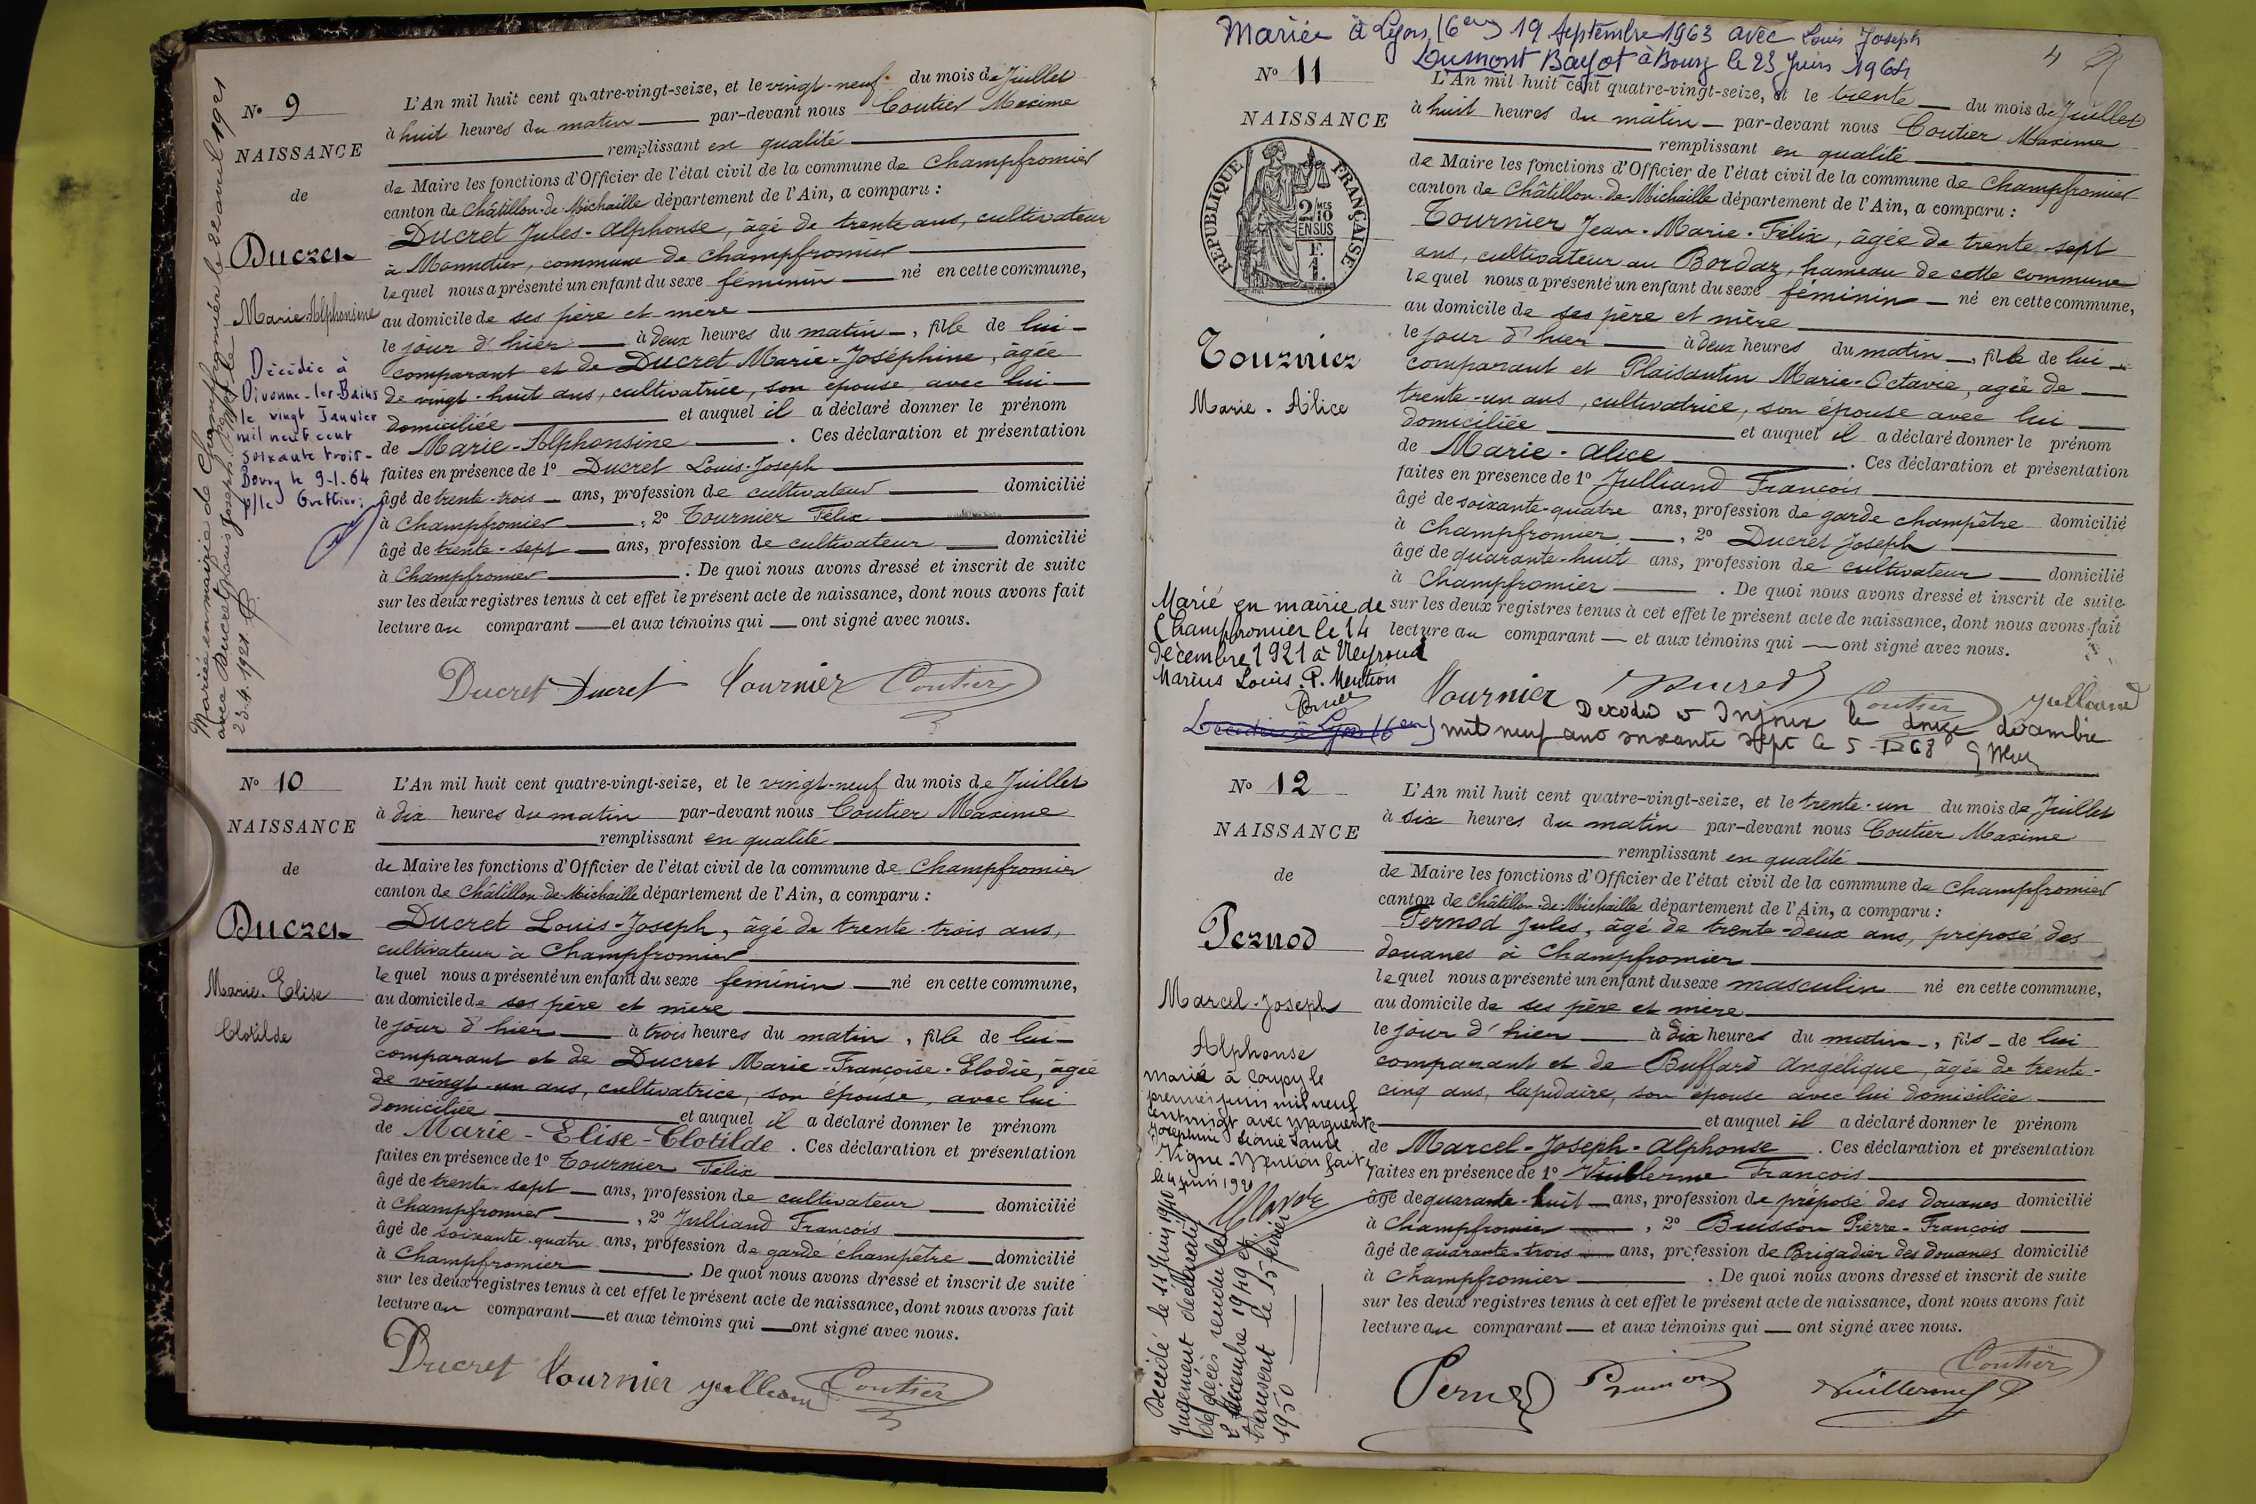 Nº 9
NAISSANCE
de
Ducret
Marie-Alphonsine
Décédée à
Divonne-les-Bains
le vingt Janvier
mil neuf cent
soixante trois -
Bourg le 9-1-64
Mariée en mairie de Champfromier le 22 avril 1921
avec Ducret Louis Joseph
23.4.1921
L'An mil huit cent quatre-vingt-seize, et le vingt-neuf du mois de Juillet
à huit heures du matin par-devant nous Coutier Maxime
remplissant en qualité
de Maire les fonctions d'Officier de l'état civil de la commune de Champfromier
canton de Châtillon-de-Michaille département de l'Ain, a comparu :
Ducret Jules-Alphonse, âgé de trente ans, cultivateur
à Monnetier, commune de Champfromier
lequel nous a présenté un enfant du sexe féminin né en cette commune,
au domicile de ses père et mère
le jour d'hier à deux heures du matin, fille de lui
comparant et de Ducret Marie-Joséphine, âgée
de vingt-huit ans, cultivatrice, son épouse, avec lui
domiciliée et auquel il a déclaré donner le prénom
de Marie-Alphonsine. Ces déclaration et présentation
faites en présence de 1º Ducret Louis-Joseph
âgé de trente-trois ans, profession de cultivateur domicilié
à Champfromier, 2º Tournier Félix
âgé de trente-sept ans, profession de cultivateur domicilié
à Champfromier. De quoi nous avons dressé et inscrit de suite
sur les deux registres tenus à cet effet le présent acte de naissance, dont nous avons fait
lecture au comparant et aux témoins qui ont signé avec nous.
Ducret Ducret Tournier Coutier
Nº 10
NAISSANCE
de
Ducret
Marie-Elise
Clotilde
L'An mil huit cent quatre-vingt-seize, et le vingt-neuf du mois de Juillet
à dix heures du matin par-devant nous Coutier Maxime
remplissant en qualité
de Maire les fonctions d'Officier de l'état civil de la commune de Champfromier
canton de Châtillon-de-Michaille département de l'Ain, a comparu :
Ducret Louis-Joseph, âgé de trente-trois ans,
cultivateur à Champfromier
lequel nous a présenté un enfant du sexe féminin né en cette commune,
au domicile de ses père et mère
le jour d'hier à trois heures du matin, fille de lui
comparant et de Ducret Marie-Françoise-Elodie, âgée
de vingt-un ans, cultivatrice, son épouse, avec lui
domiciliée et auquel il a déclaré donner le prénom
de Marie-Elise-Clotilde. Ces déclaration et présentation
faites en présence de 1º Tournier Félix
âgé de trente-sept ans, profession de cultivateur domicilié
à Champfromier, 2º Julliand François
âgé de soixante-quatre ans, profession de garde champêtre domicilié
à Champfromier. De quoi nous avons dressé et inscrit de suite
sur les deux registres tenus à cet effet le présent acte de naissance, dont nous avons fait
lecture au comparant et aux témoins qui ont signé avec nous.
Ducret Tournier Julliand Coutier
Mariée à Lyon (6em) 19 Septembre 1963 avec Louis Joseph
Dumont Bayot à Bourg le 23 Juin 1964
4
Nº 11
NAISSANCE
RÉPUBLIQUE FRANÇAISE
2 MES
10
EN SUS
F.
1.
Tournier
Marie-Alice
Marié en mairie de
Champfromier le 14
décembre 1921 à Veyroud
Marius Louis. P. Mention
L'An mil huit cent quatre-vingt-seize, et le trente du mois de Juillet
à huit heures du matin par-devant nous Coutier Maxime
remplissant en qualité
de Maire les fonctions d'Officier de l'état civil de la commune de Champfromier
canton de Châtillon-de-Michaille département de l'Ain, a comparu :
Tournier Jean-Marie-Félix, âgée de trente-sept
ans, cultivateur au Bordaz, hameau de cette commune
lequel nous a présenté un enfant du sexe féminin né en cette commune,
au domicile de ses père et mère
le jour d'hier à deux heures du matin, fille de lui
comparant et Plaisantin Marie-Octavie, agée de
trente-un ans, cultivatrice, son épouse avec lui
domiciliée et auquel il a déclaré donner le prénom
de Marie-Alice. Ces déclaration et présentation
faites en présence de 1º Julliand François
âgé de soixante-quatre ans, profession de garde champêtre domicilié
à Champfromier, 2º Ducret Joseph
âgé de quarante-huit ans, profession de cultivateur domicilié
à Champfromier. De quoi nous avons dressé et inscrit de suite
sur les deux registres tenus à cet effet le présent acte de naissance, dont nous avons fait
lecture au comparant et aux témoins qui ont signé avec nous.
Tournier Ducret Coutier Julliand
Décédée à Lyon (6em)
Décédée à Injoux le douze décembre
mil neuf cent soixante sept le 5-I-68
Nº 12
NAISSANCE
de
Pernod
Marcel-Joseph
Alphonse
marié à Coupy le
premier juin mil neuf
cent vingt avec Marguerite
Joséphine
Vigne - Mention faite
le 4 juin 1920
Décédé le 11 Juin 1940
Jugement déclaratif
de décès rendu le
2 décembre 1949 et
transcrit le 15 février
1950
L'An mil huit cent quatre-vingt-seize, et le trente-un du mois de Juillet
à six heures du matin par-devant nous Coutier Maxime
remplissant en qualité
de Maire les fonctions d'Officier de l'état civil de la commune de Champfromier
canton de Châtillon-de-Michaille département de l'Ain, a comparu :
Pernod Jules, âgé de trente-deux ans, préposé des
douanes à Champfromier
lequel nous a présenté un enfant du sexe masculin né en cette commune,
au domicile de ses père et mère
le jour d'hier à dix heures du matin, fils de lui
comparant et de Buffard Angélique, âgée de trente-
cinq ans, lapidaire, son épouse avec lui domiciliée
et auquel il a déclaré donner le prénom
de Marcel-Joseph-Alphonse. Ces déclaration et présentation
faites en présence de 1º Vuillerme François
âgé de quarante-huit ans, profession de préposé des douanes domicilié
à Champfromier, 2º Buisson Pierre-François
âgé de quarante-trois ans, profession de Brigadier des douanes domicilié
à Champfromier. De quoi nous avons dressé et inscrit de suite
sur les deux registres tenus à cet effet le présent acte de naissance, dont nous avons fait
lecture au comparant et aux témoins qui ont signé avec nous.
Pernod Buisson Vuillerme Coutier